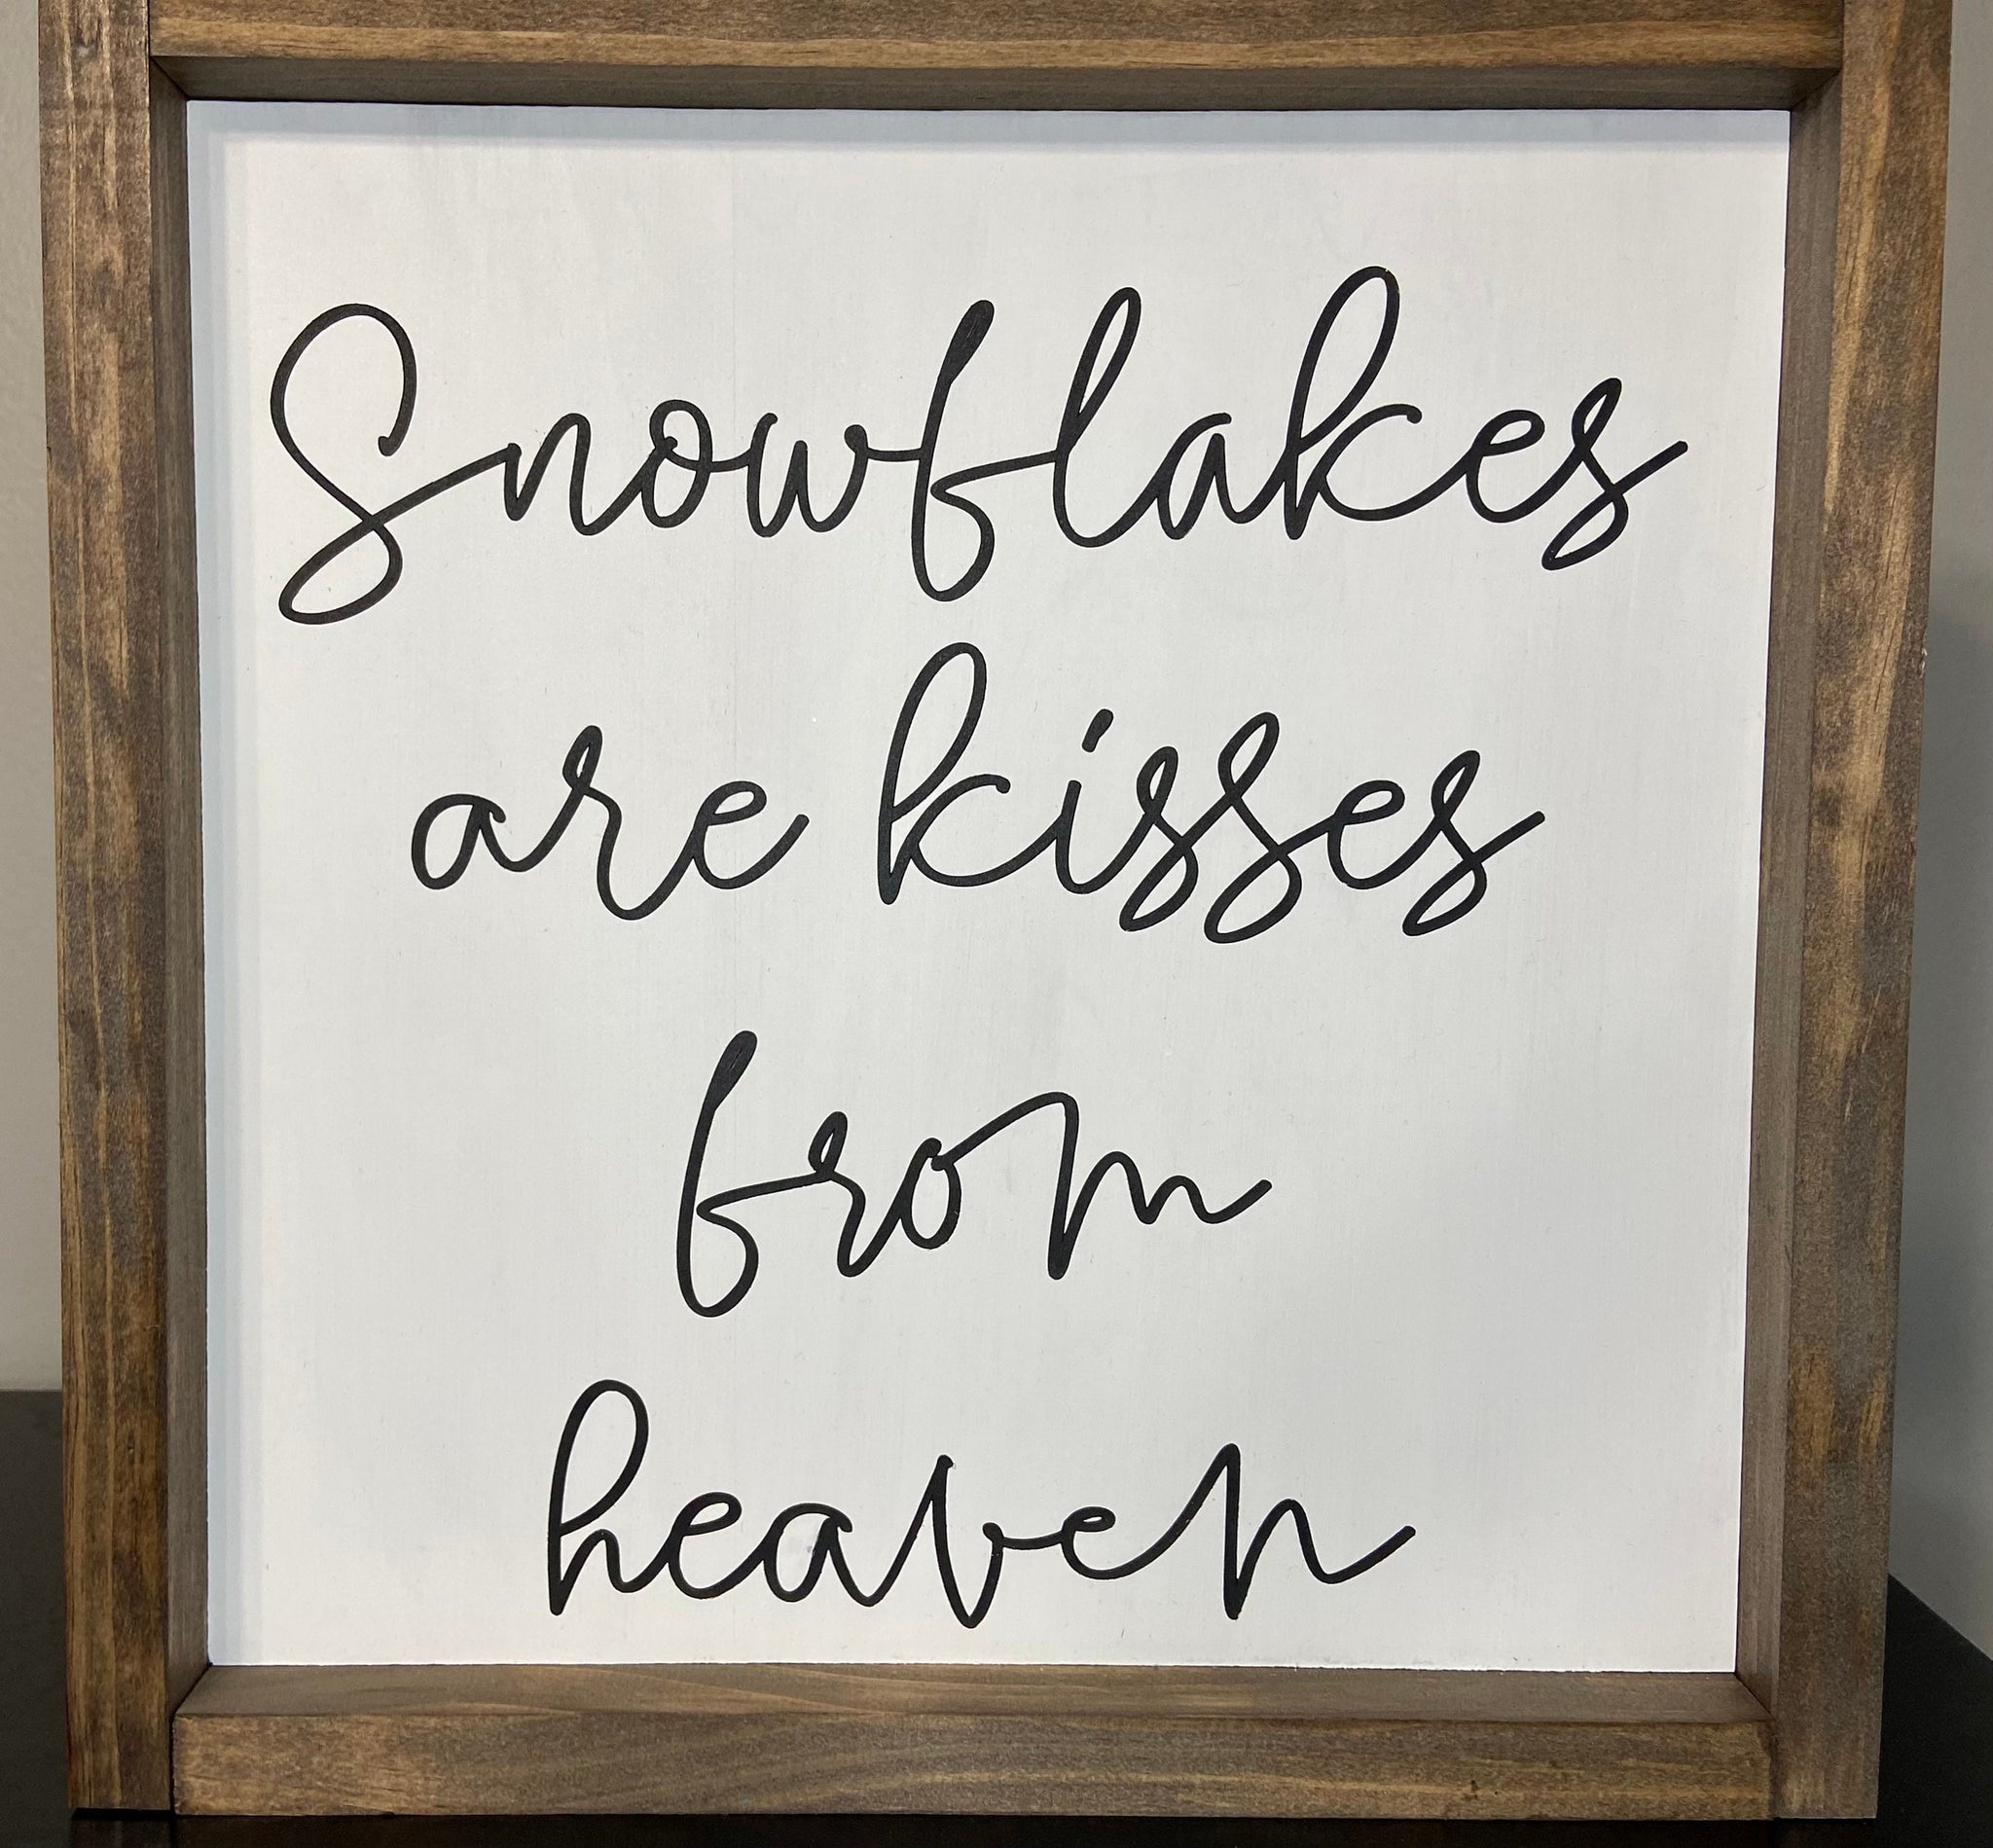 Snowflakes
are kisses
from
heaven